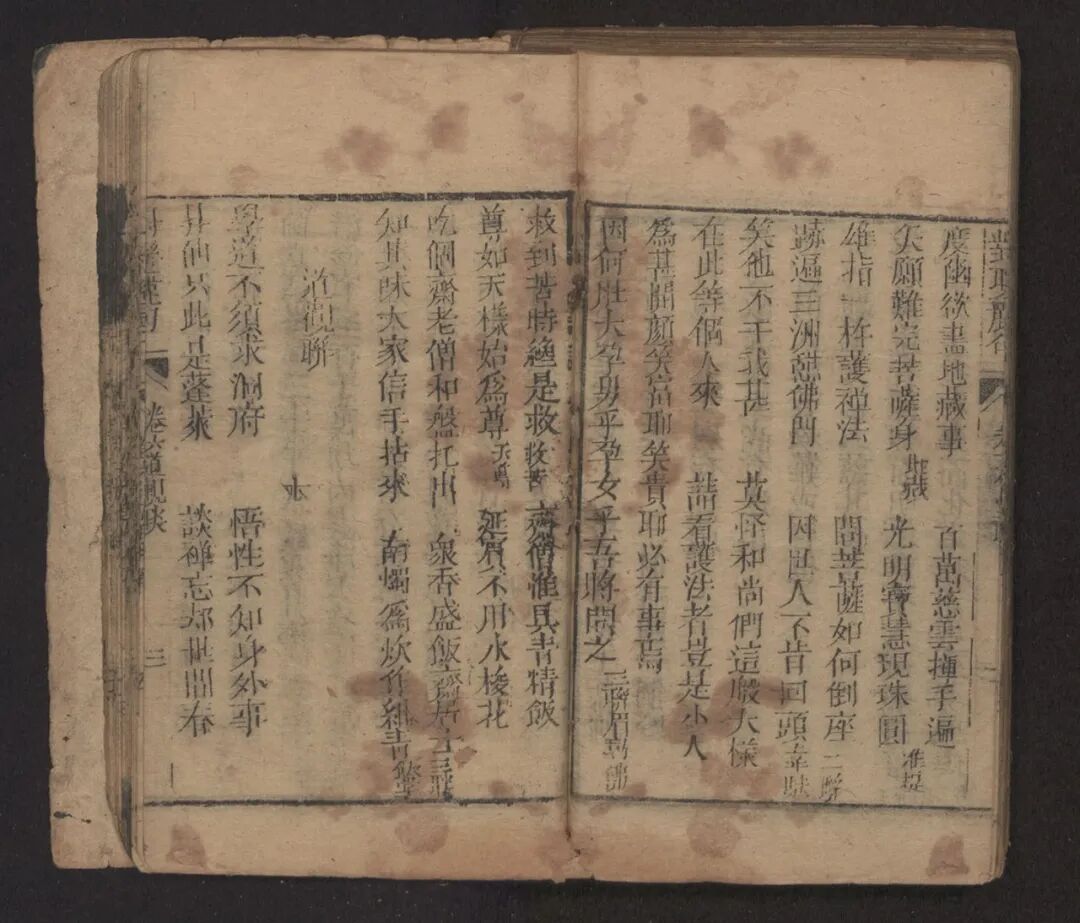 度幽欲盡地藏事　百萬慈雲揮手遍
矢願難完菩薩身 地藏　光明寶慧現珠圓 准提
雄指一杵護禪法　問菩薩如何倒座 二聯
跡遍三洲懲佛門　因世人不肯回頭 韋馱
矣他不干我甚　莫怪和尚們這般大樣
在此等個人來　請看護法者豈是小人
為甚開顏笑富耶笑貴耶必有事焉
因何肚大孕男乎孕女乎吾將問之 三聯
救到苦時總是救 救苦　齋僧惟具青精飯
尊如天樣始為尊 天尊　延賓不用水梭花
吃個齋老僧和盤托出　泉香盛飯齋
知其味大家信手拈來　南燭為炊作紺青
道觀聯
學道不須求洞府　悟性不知身外事
昇仙只此是蓬萊　談禪忘却世間春
卷 道觀聯 三